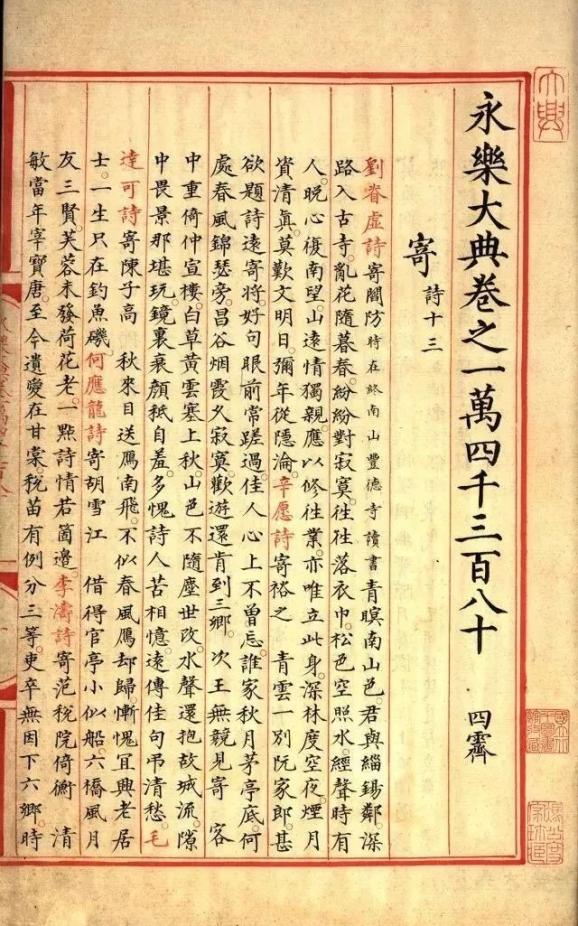 永樂大典卷之一萬四千三百八十 四霽
寄 詩十三
劉眘虛詩寄閻防時在終南山豐德寺讀書青暝南山邑君與緇錫鄰深
路入古寺亂花隨暮春紛紛對寂寞徃徃落衣巾松色空照水經聲時有
人晚心復南望山遠情獨親應以修徃業亦唯立此身深林度空夜煙月
資清眞莫歎文明日彌年從隱淪辛愿詩寄裕之 青雲一別阮家郎甚
欲題詩遠寄將好句眼前常蹉過佳人心上不曾忘誰家秋月茅亭底何
處春風錦瑟旁昌谷烟霞久寂寞歡遊還肯到三鄉 次王無競見寄 客
中重倚仲宣樓白草黃雲塞上秋山色不隨塵世改水聲還抱故城流隙
中畏景那堪玩鏡裏衰顏秪自羞多愧詩人苦相憶遠傳佳句弔清愁毛
達可詩寄陳子高 秋來目送鴈南飛不似春風鴈却歸慚愧宜興老居
士一生只在釣魚磯何應龍詩寄胡雪江 借得官亭小似船六橋風月
友三賢芙蓉未發荷花老一㸃詩情若箇邊李濤詩寄范稅院倚衡 清
敏當年宰寶唐至今遺愛在甘棠稅苗有例分三等吏卒無因下六鄉時
大興